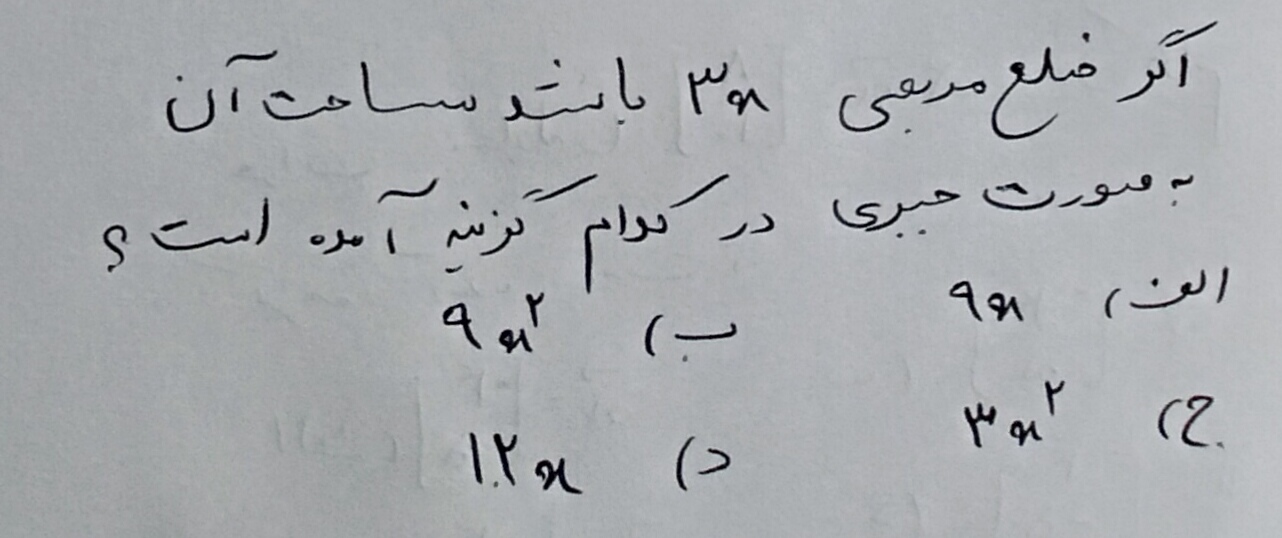 اگر ضلع مربعی ۳x باشد مساحت آن
به صورت جبری در کدام گزینه آمده است؟
الف) ۹x ب) ۹x^۲
ج) ۳x^۲ د) ۱۲x